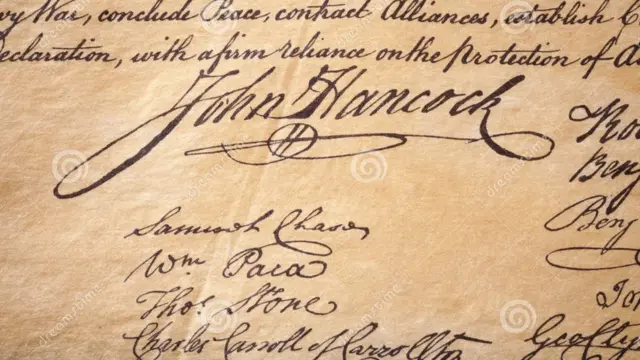 vy War, conclude Peace, contract Alliances, establish C
eclaration, with a firm reliance on the Protection of
John Hancock
Ro
Benj
Samuel Chase
Benj
Wm Paca
Thos Stone
Jo
Charles Carroll of Carrollton
Geo Cly
dreamstime